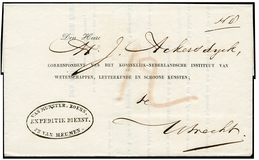 Den Heer
40
J. Ackersdyck,
CORRESPONDENT VAN HET KONINKLIJK-NEDERLANDSCH INSTITUUT VAN
WETENSCHAPPEN, LETTERKUNDE EN SCHOONE KUNSTEN,
12
te
Utrecht.
VAN MUNSTER, ZOENE,
EXPEDITIE DIENST,
VAN HEUMEN